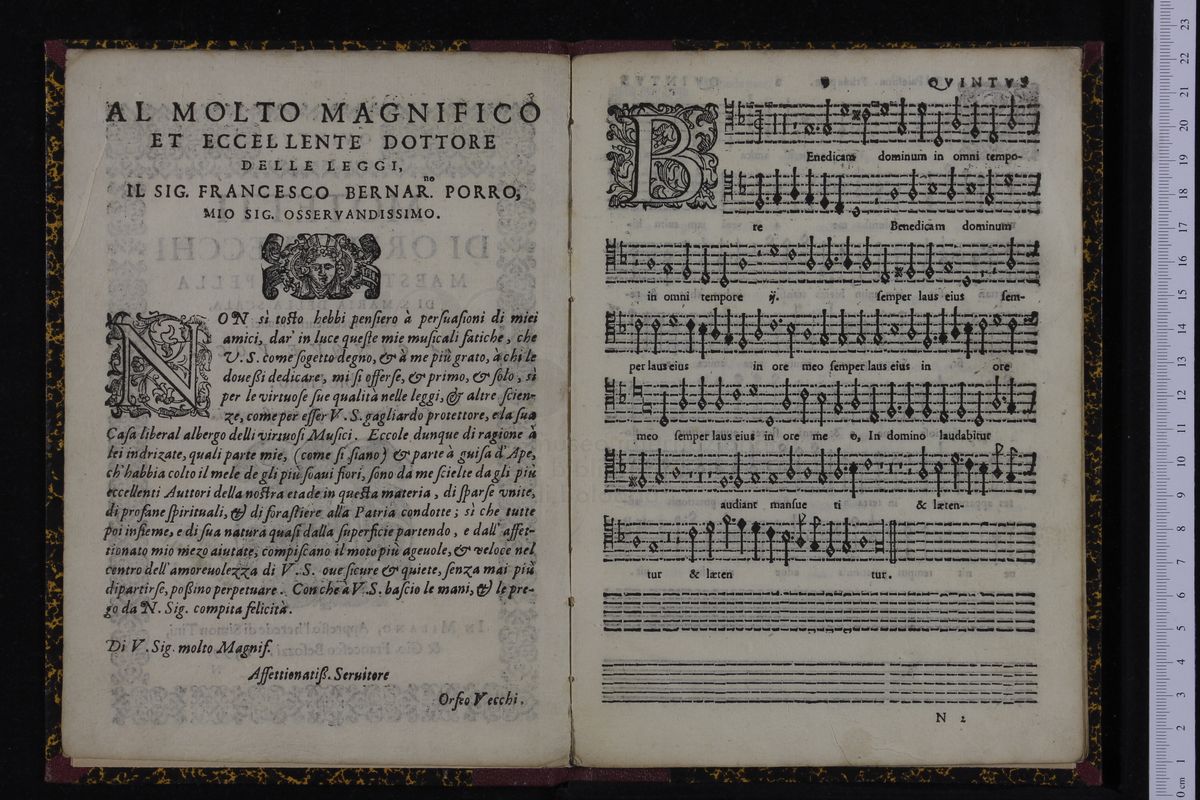 AL MOLTO MAGNIFICO
ET ECCELLENTE DOTTORE
DELLE LEGGI,
IL SIG. FRANCESCO BERNAR.no PORRO,
MIO SIG. OSSERVANDISSIMO.
NON sì tosto hebbi pensiero à persuasioni di miei
amici, dar' in luce queste mie musicali fatiche, che
V. S. come sogetto degno, & à me più grato, à chi le
dovessi dedicare, mi si offerse, & primo, & solo, sì
per le virtuose sue qualità nelle leggi, & altre scien-
ze, come per esser V. S. gagliardo protettore, e la sua
Casa liberal albergo delli virtuosi Musici. Eccole dunque di ragione à
lei indrizate, quali parte mie, (come si siano) & parte à guisa d'Ape,
ch'habbia colto il mele de gli più soaui fiori, sono da me scielte da gli più
eccellenti Auttori della nostra etade in questa materia, di sparse vnite,
di profane spirituali, & di forastiere alla Patria condotte; sì che tutte
poi insieme, e di sua natura quasi dalla superficie partendo, e dall'affet-
tionato mio mezo aiutate, compiscano il moto più ageuole, & veloce nel
centro dell'amoreuolezza di V. S. oue sicure & quiete, senza mai più
dipartirse, possino perpetuare. Con che à V. S. bascio le mani, & le pre-
go da N. Sig. compita felicità.
Di V. Sig. molto Magnif.
Affettionatiss. Seruitore
Orfeo Vecchi.
QVINTVS
BEnedicam dominum in omni tempo-
re Benedicam dominum
in omni tempore ij. semper laus eius sem-
per laus eius in ore meo semper laus eius in ore
meo semper laus eius in ore me o, In domino laudabitur
audiant mansue ti & læten-
tur & læten tur.
N 2
0 cm 1 2 3 4 5 6 7 8 9 10 11 12 13 14 15 16 17 18 19 20 21 22 23